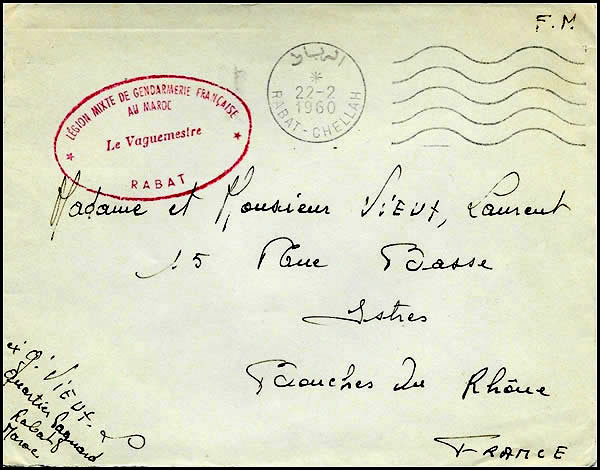 F.M.
الرباط
22-2
1960
RABAT-CHELLAH
LÉGION MIXTE DE GENDARMERIE FRANÇAISE
AU MAROC
Le Vaguemestre
RABAT
Madame et Monsieur VIEUX, Laurent
15 Rue Basse
Istres
Bouches Du Rhône
FRANCE
VIEUX
Quartier
Rabat
Maroc